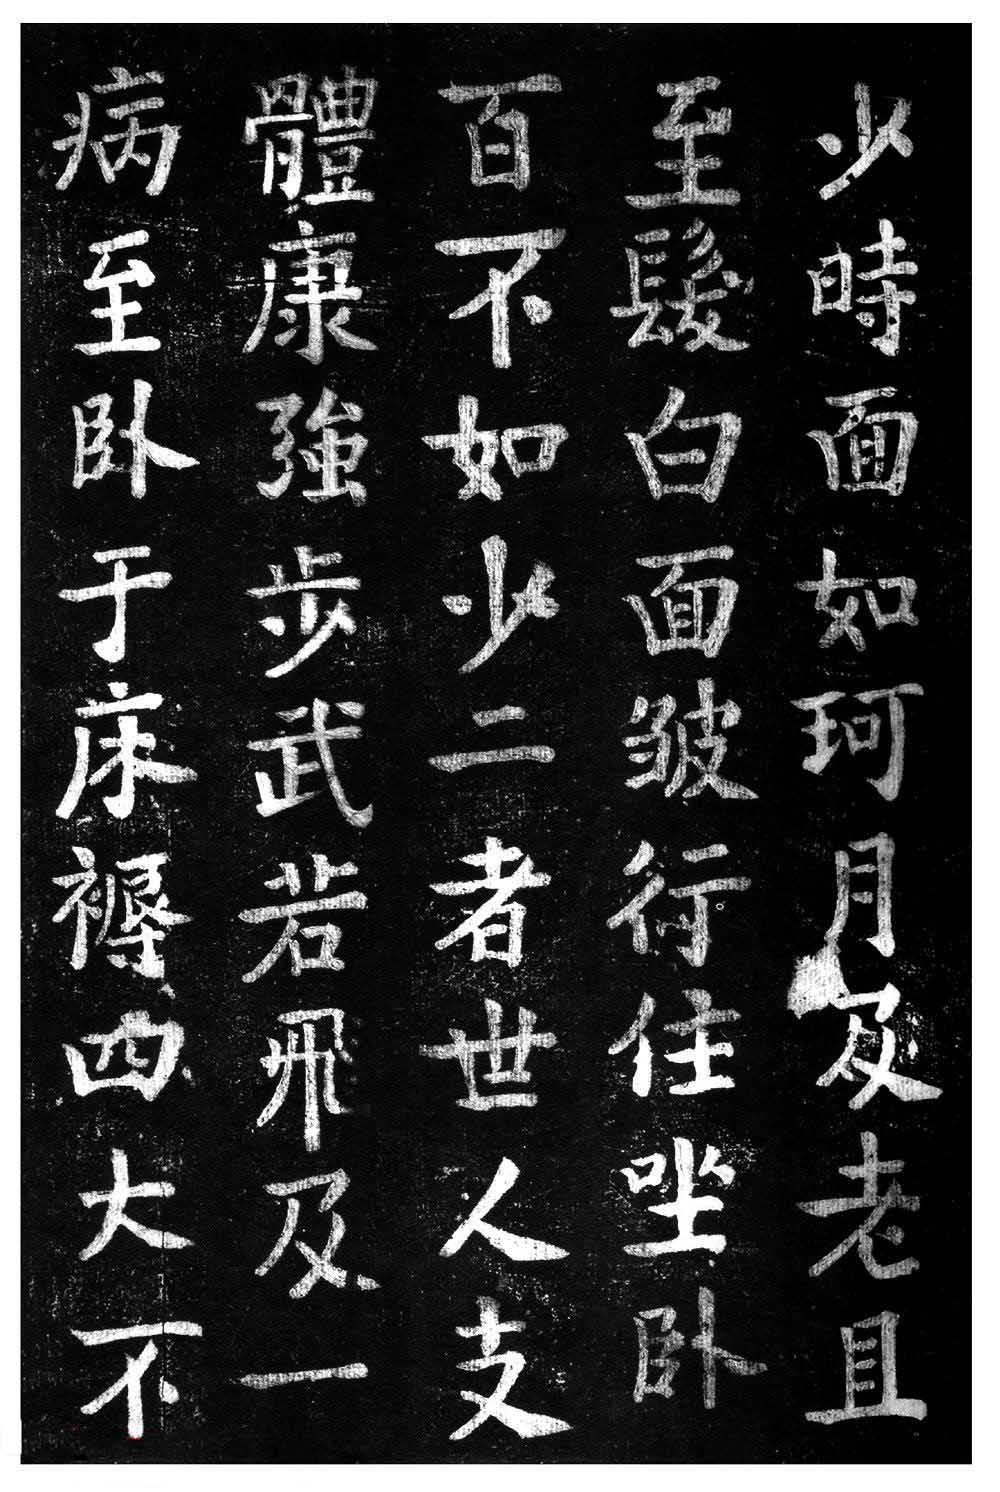 少時面如珂月及老且
至髮白面皺行住坐卧
百不如少二者世人支
體康強步武若飛及一
病至卧于床褥四大不